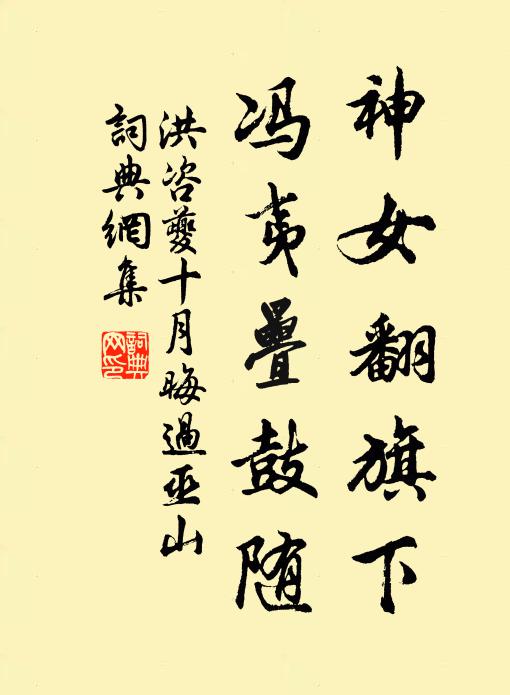 神女翻旗下
冯夷疊鼓随
洪咨夔十月晦過巫山
詞典網集
詞典
网印